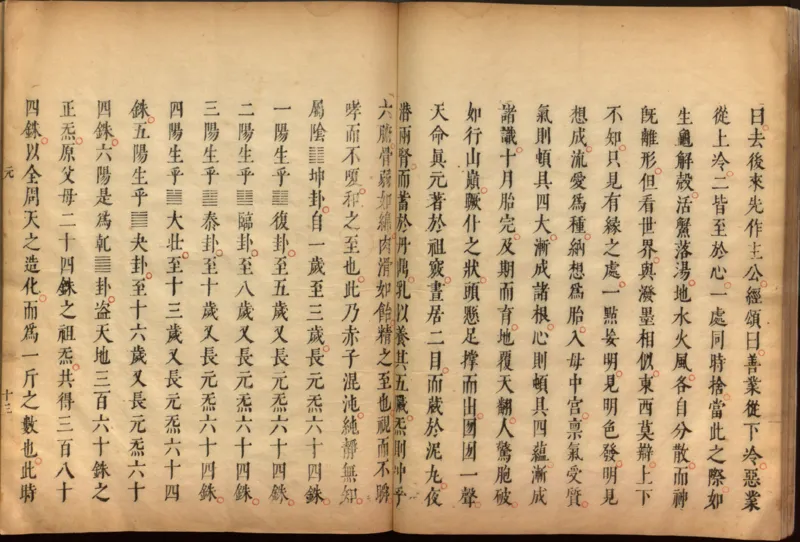 曰去後來先作主公經頌曰善業從下冷惡業
從上冷二皆至於心一處同時捨當此之際如
生龜解殼活蟹落湯地水火風各自分散而神
旣離形但看世界與潑墨相似東西莫辯上下
不知只見有緣之處一點妄明見明色發明見
想成流愛爲種納想爲胎入母中宮稟氣受質
氣則頓具四大漸成諸根心則頓具四蘊漸成
諸識十月胎完及期而育地覆天翻人驚胞破
如行山巔蹶仆之狀頭懸足撑而出囫囫一聲
天命眞元著於祖竅晝居二目而藏於泥丸夜
潛兩腎而蓄於丹鼎乳以養其五臟炁則冲乎
六腑骨弱如綿肉滑如飴精之至也視而不瞬
哮而不嗄和之至也此乃赤子混沌純靜無知
屬陰䷁坤卦自一歲至三歲長元炁六十四銖
一陽生乎䷗復卦至五歲又長元炁六十四銖
二陽生乎䷒臨卦至八歲又長元炁六十四銖
三陽生乎䷊泰卦至十歲又長元炁六十四銖
四陽生乎䷡大壯至十三歲又長元炁六十四
銖五陽生乎䷪夬卦至十六歲又長元炁六十
四銖六陽是爲乾䷀卦盜天地三百六十銖之
正炁原父母二十四銖之祖炁共得三百八十
四銖以全周天之造化而爲一斤之數也此時
元
十三